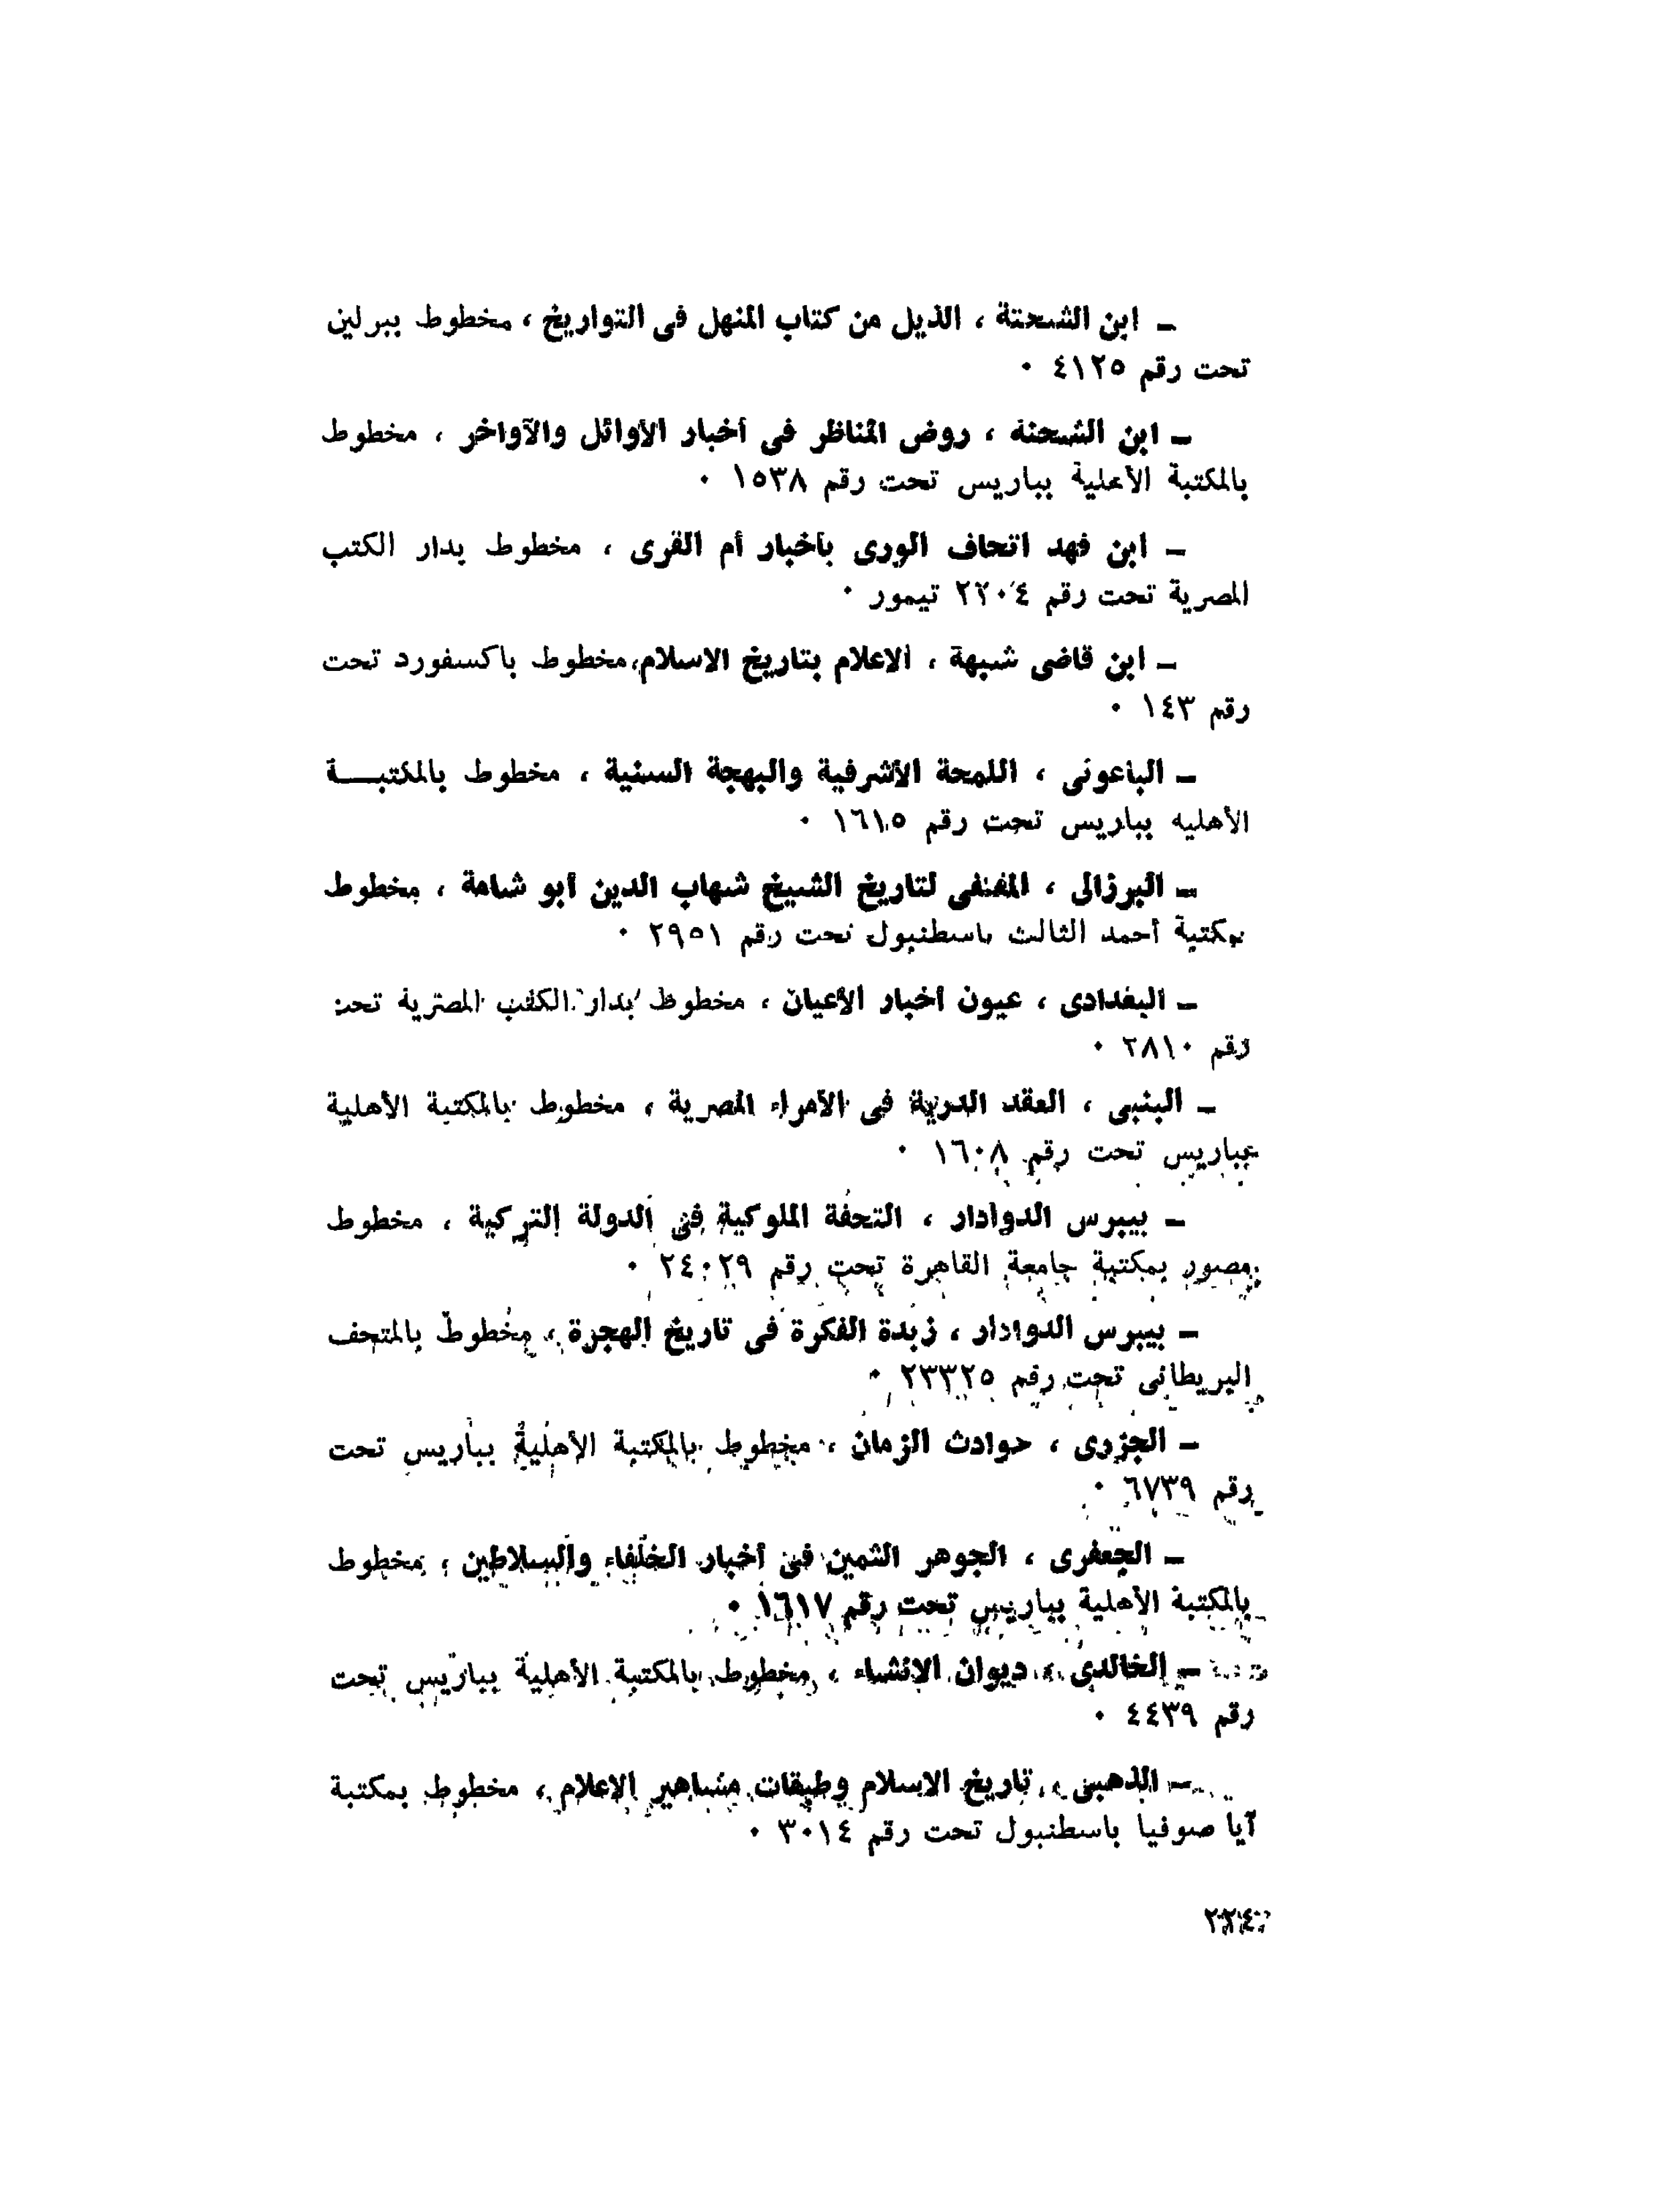 ـ ابن الشحتة ، الذيل من كتاب المنهل فى التواريخ ، مخطوط ببرلين
تحت رقم ٤١٢٥ ٠
ـ ابن الشحنه ، روض المناظر فى أخبار الأوائل والآواخر ، مخطوط
بالمكتبة الأهلية بباريس تحت رقم ١٥٣٨ ٠
ـ ابن فهد اتحاف الورى بأخبار أم القرى ، مخطوط بدار الكتب
المصرية تحت رقم ٢٢٠٤ تيمور ٠
ـ ابن قاضى شبهة ، الاعلام بتاريخ الاسلام، مخطوط باكسفورد تحت
رقم ١٤٣ ٠
ـ الباعونى ، اللمحة الأشرفية والبهجة السنية ، مخطوط بالمكتبـــة
الأهليه بباريس تحت رقم ١٦١٥ ٠
ـ البرزالى ، المقتفى لتاريخ الشيخ شهاب الدين أبو شامة ، مخطوط
بمكتبة أحمد الثالث باسطنبول تحت رقم ٢٩٥١ ٠
ـ البغدادى ، عيون أخبار الأعيان ، مخطوط بدار الكتب المصرية تحت
رقم ٢٨١٠ ٠
ـ البنبى ، العقد الدرية فى الأمراء المصرية ، مخطوط بالمكتبة الأهلية
بباريس تحت رقم ١٦٠٨ ٠
ـ بيبرس الدوادار ، التحفة الملوكية فى الدولة التركية ، مخطوط
مصور بمكتبة جامعة القاهرة تحت رقم ٢٤٠٢٩ ٠
ـ بيبرس الدوادار ، زبدة الفكرة فى تاريخ الهجرة ، مخطوط بالمتحف
البريطانى تحت رقم ٢٣٣٢٥ ٠
ـ الجزرى ، حوادث الزمان ، مخطوط بالمكتبة الأهلية بباريس تحت
رقم ٦٧٣٩ ٠
ـ الجعفرى ، الجوهر الثمين فى أخبار الخلفاء والسلاطين ، مخطوط
بالمكتبة الأهلية بباريس تحت رقم ١٦١٧ ٠
ـ الخالدى ، ديوان الانشاء ، مخطوط بالمكتبة الأهلية بباريس تحت
رقم ٤٤٣٩ ٠
ـ الذهبى ، تاريخ الاسلام وطبقات مشاهير الاعلام ، مخطوط بمكتبة
آيا صوفيا باسطنبول تحت رقم ٣٠١٤ ٠
٢٢٤